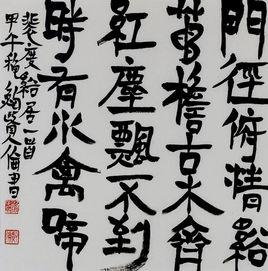 門徑俯清谿
茅檐古木齊
紅塵飄不到
時有水禽啼
裴度谿居一首
甲午穐書